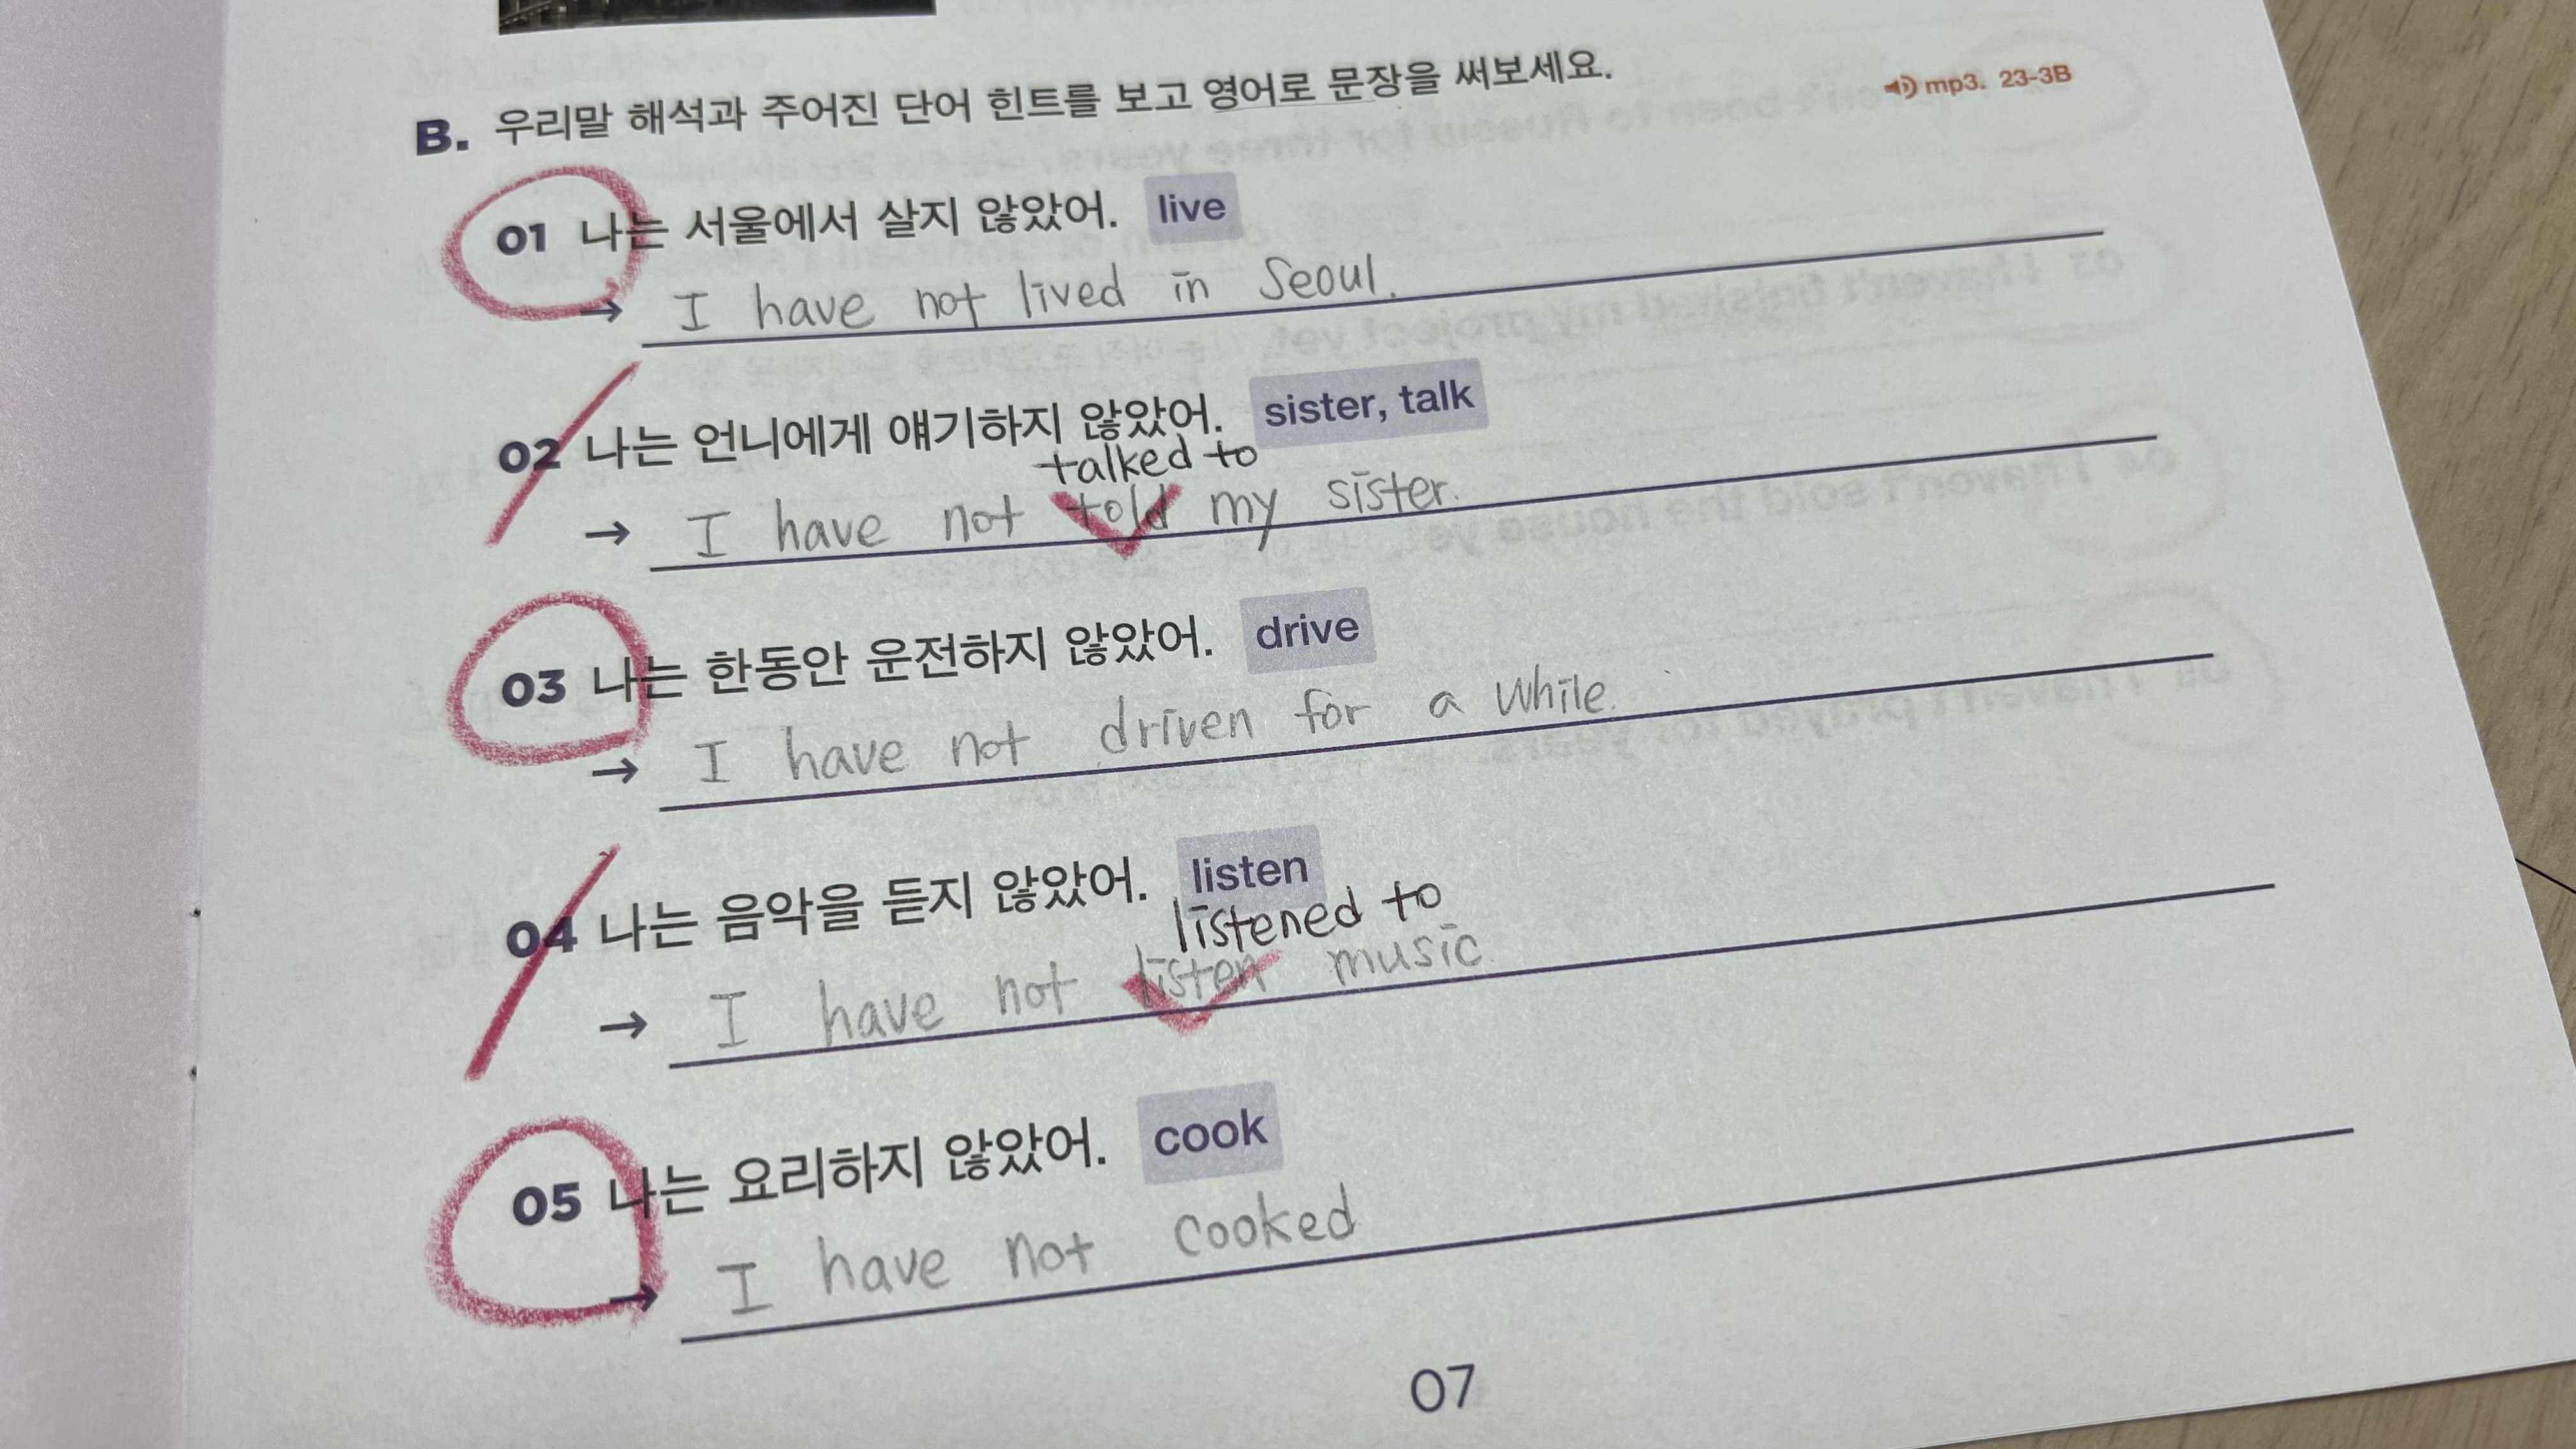 B. 우리말 해석과 주어진 단어 힌트를 보고 영어로 문장을 써보세요. mp3. 23-3B
01 나는 서울에서 살지 않았어. live
→ I have not lived in Seoul.
02 나는 언니에게 얘기하지 않았어. sister, talk
talked to
→ I have not told my sister.
03 나는 한동안 운전하지 않았어. drive
→ I have not driven for a while.
04 나는 음악을 듣지 않았어. listen
listened to
→ I have not listen music.
05 나는 요리하지 않았어. cook
→ I have not cooked
07